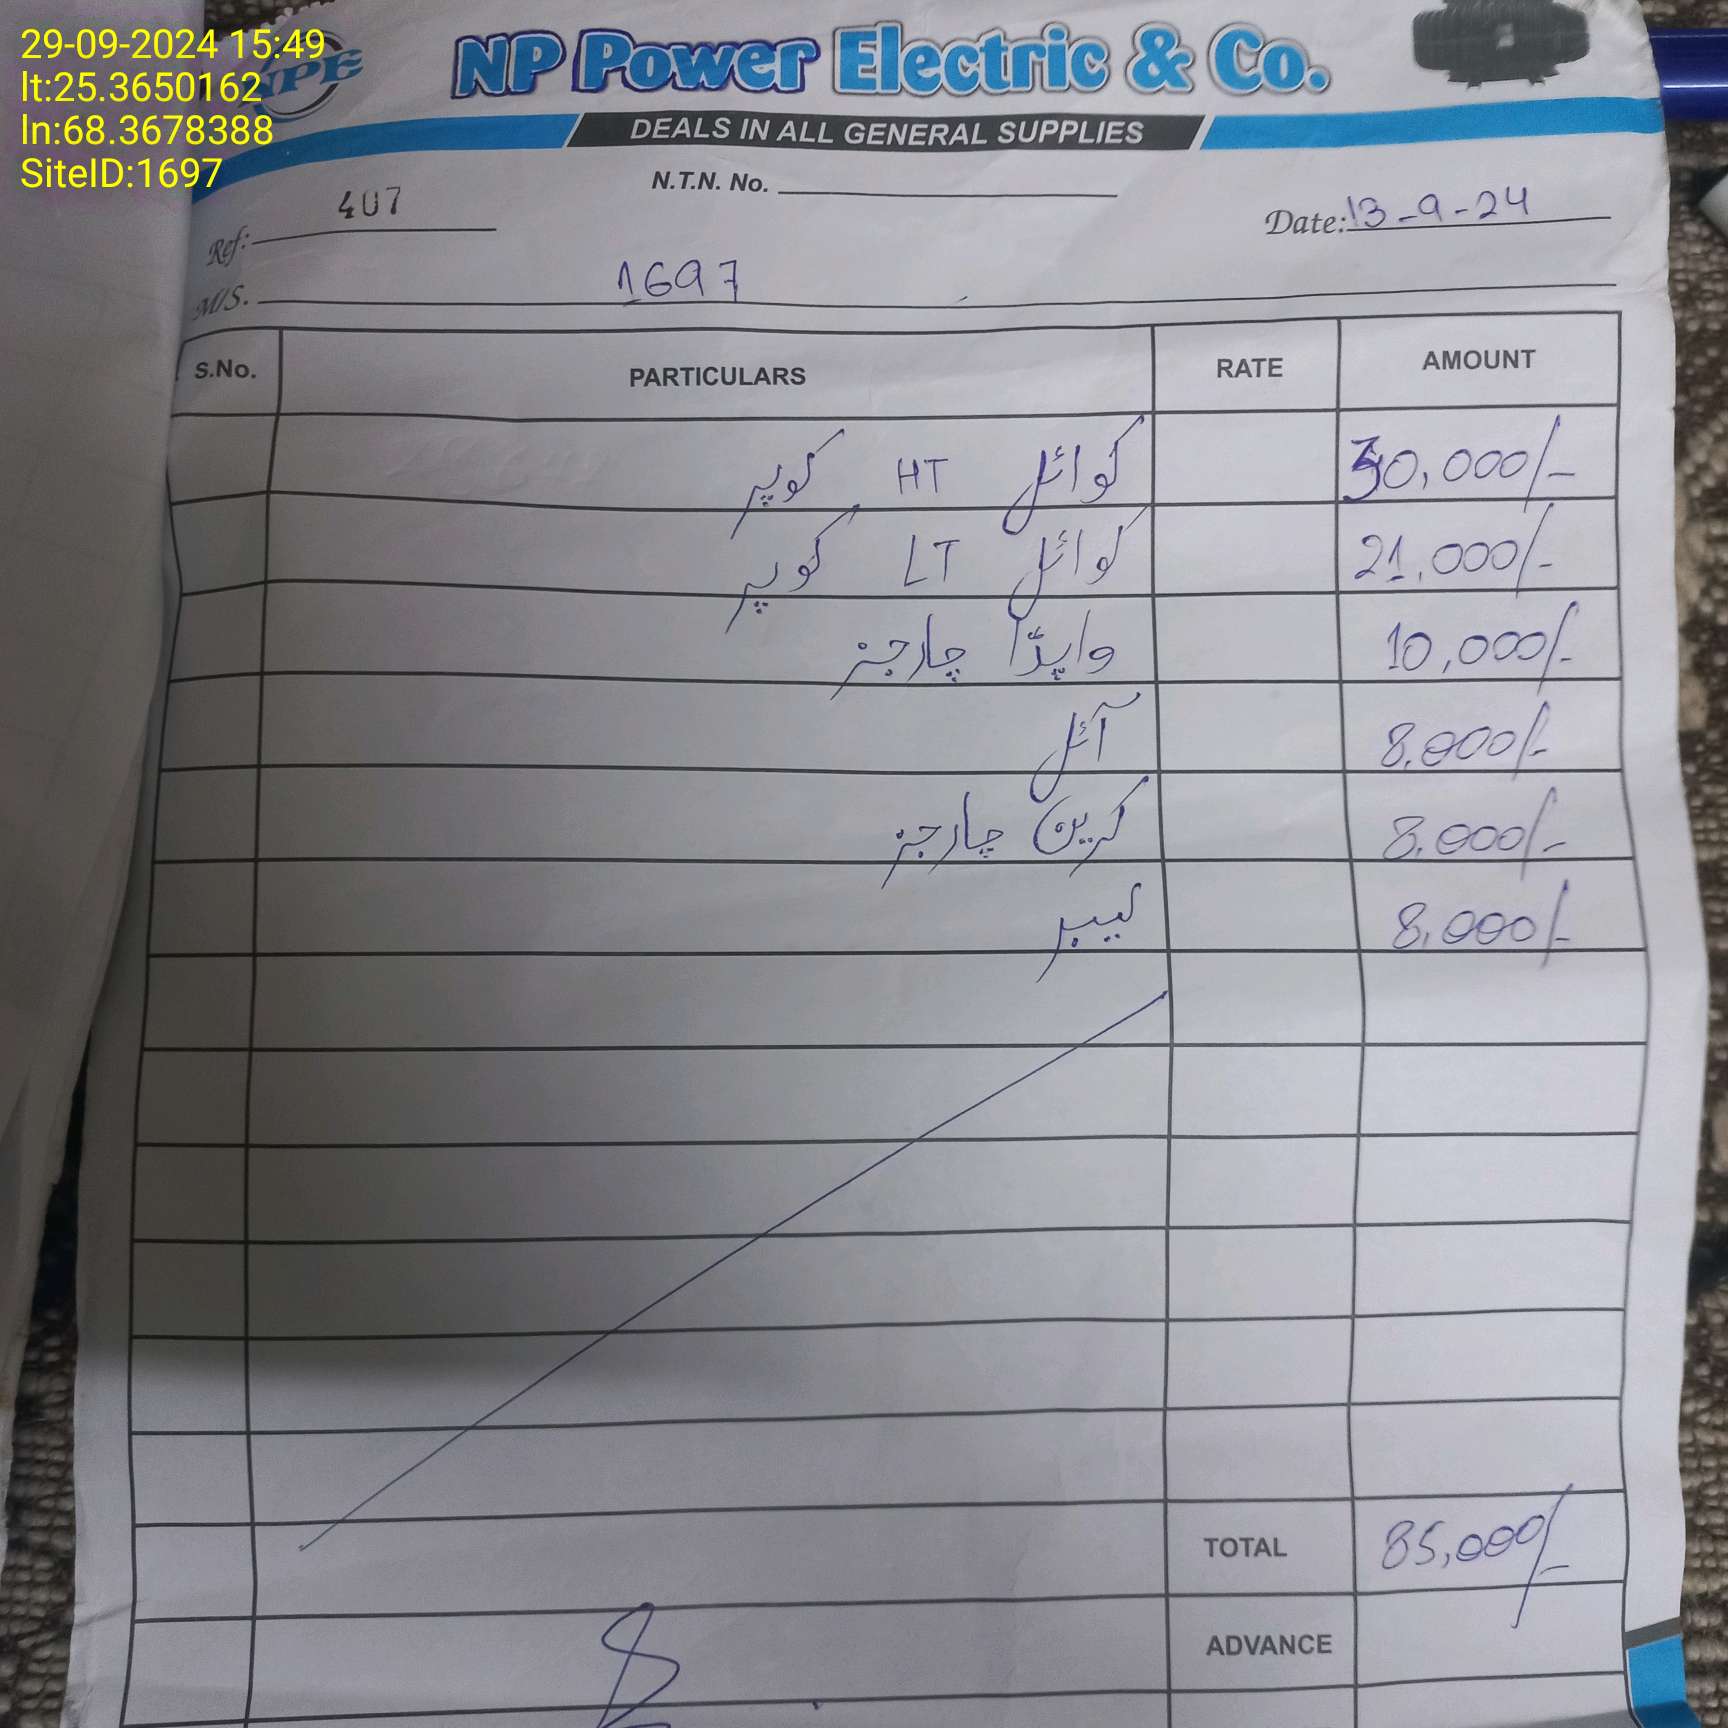 29-09-2024 15:49
lt:25.3650162
ln:68.3678388
SiteID:1697
NPE
NP Power Electric & Co.
DEALS IN ALL GENERAL SUPPLIES
N.T.N. No.
Ref: 407
Date: 13-9-24
M/S. 1697
S.No. PARTICULARS RATE AMOUNT
کوائل HT کوپر 30,000/-
کوائل LT کوپر 21,000/-
واپڈا چارجز 10,000/-
آئل 8,000/-
کرین چارجز 8,000/-
لیبر 8,000/-
TOTAL 85,000/-
ADVANCE